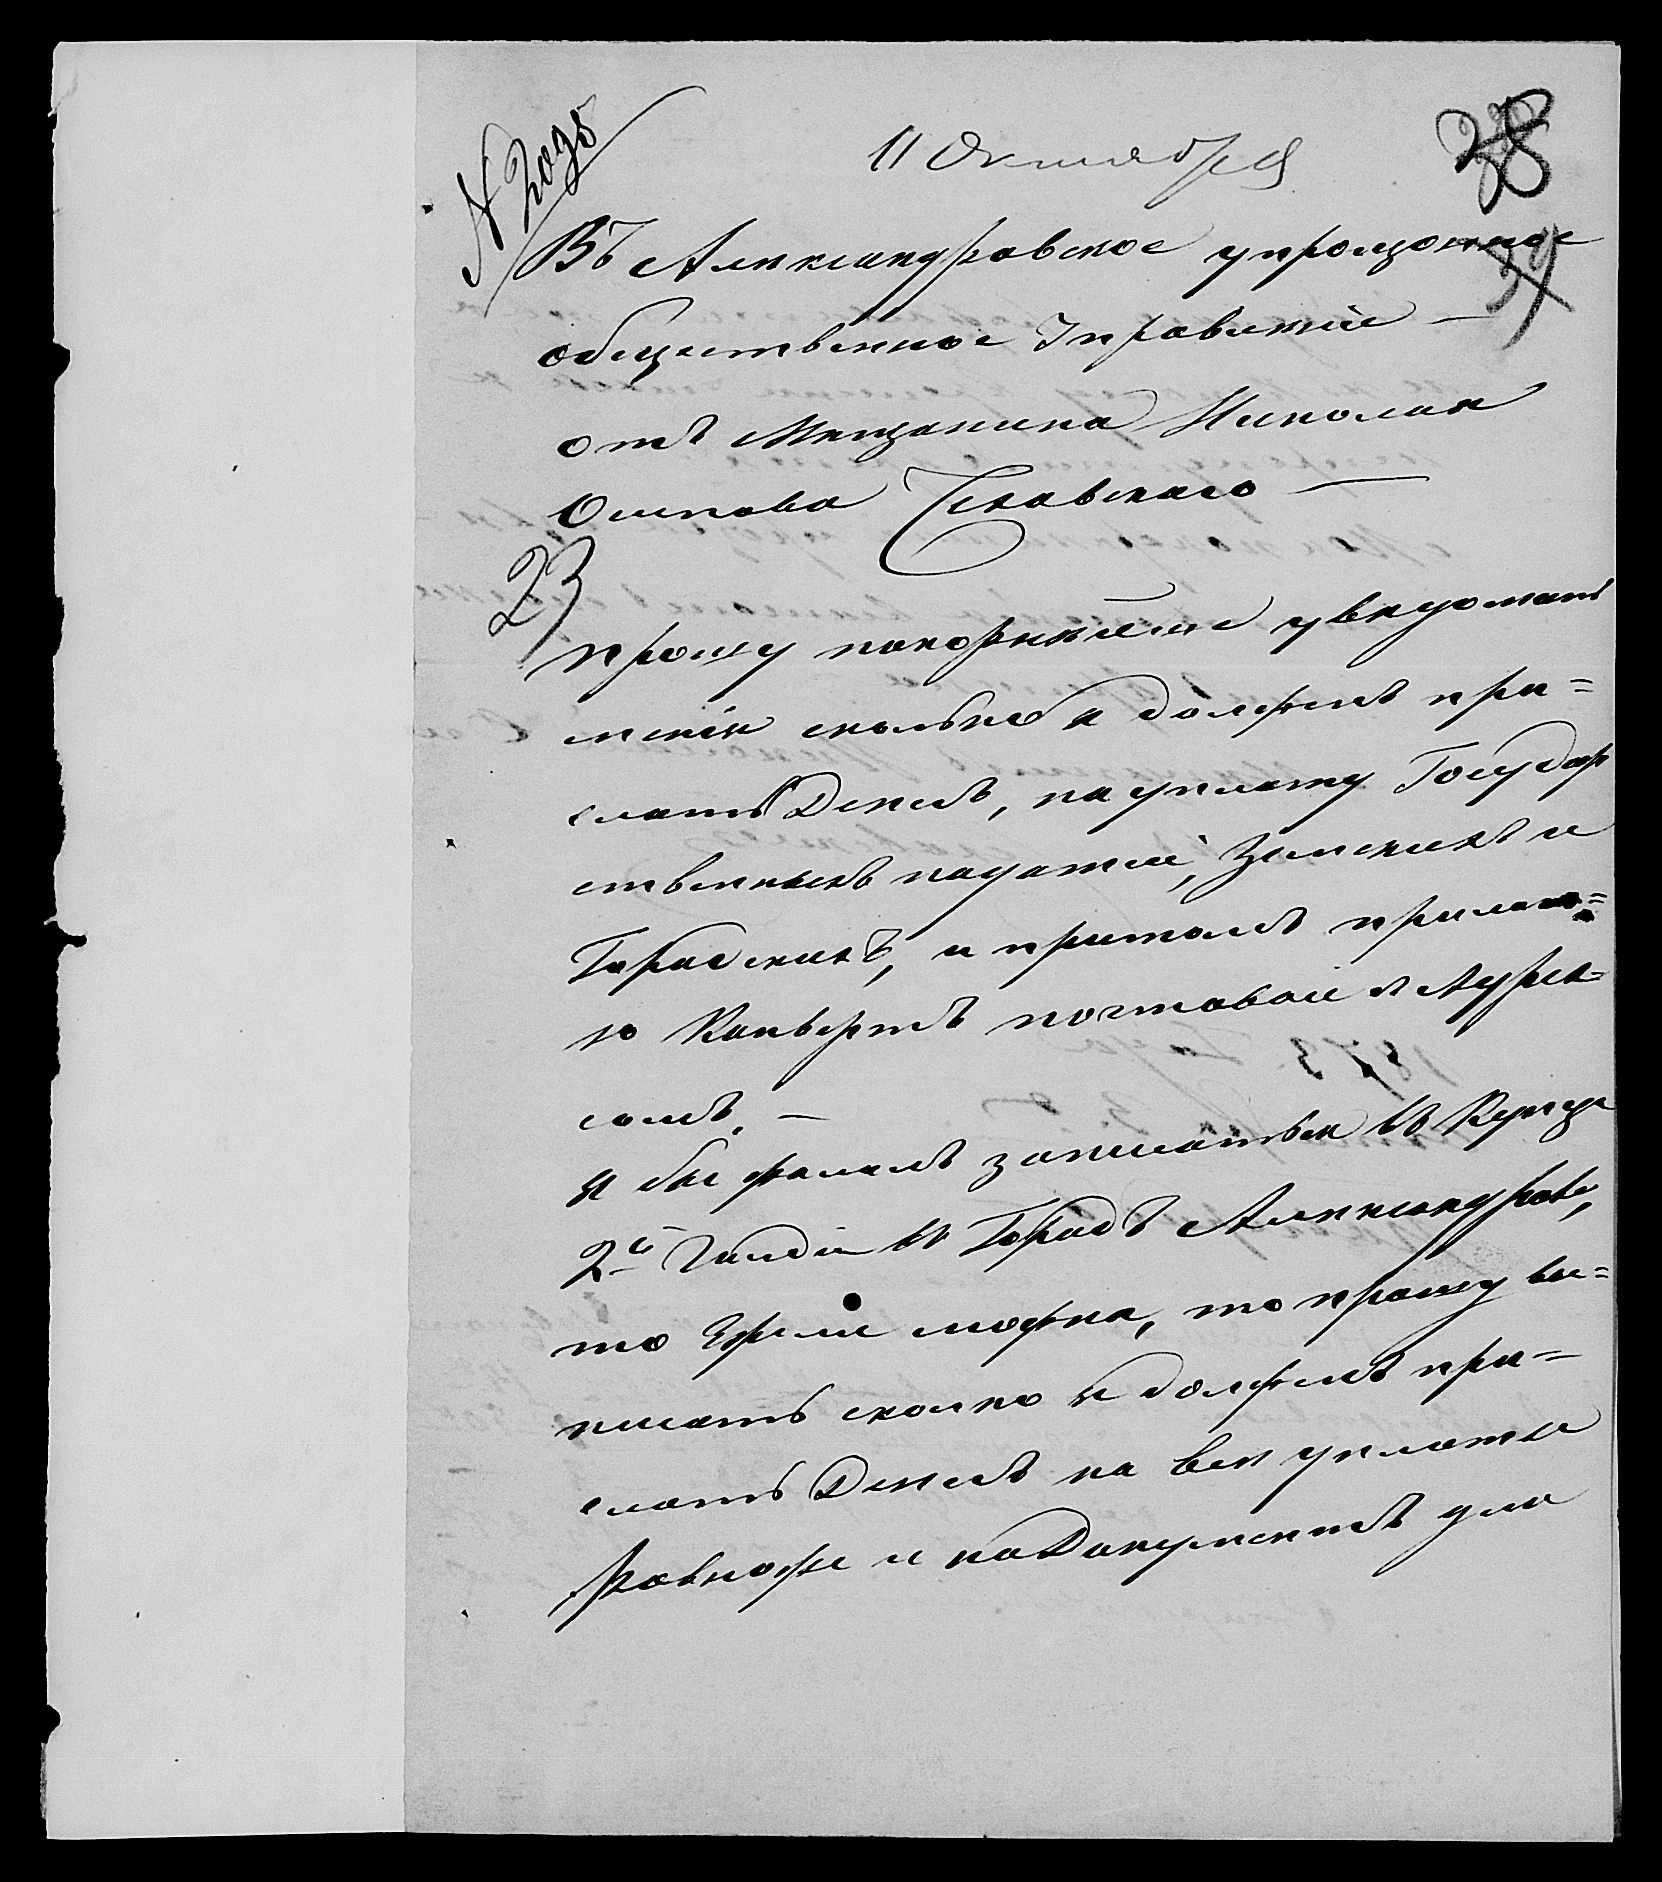 N 2095
11 Октября
38
39
Въ Александровское упрощонное
общественное Управление —
отъ Мещанина Николая
Осипова Чеховскаго —
23
прошу покорнейше уведомить
меня сколько я долженъ при=
слать Денегъ, на уплату Государ
ственныхъ податей, Земскихъ и
Городскихъ, и притомъ прилага=
ю Конвертъ почтовой с Адрес=
сомъ. —
я бы желалъ записатьса въ Купцы
2й Гилдии въ Городъ Александровъ,
то Ежели можна, то прошу вы=
писать сколко я долженъ при=
слать Денегъ на все уплаты
Равнофе и на Документъ для